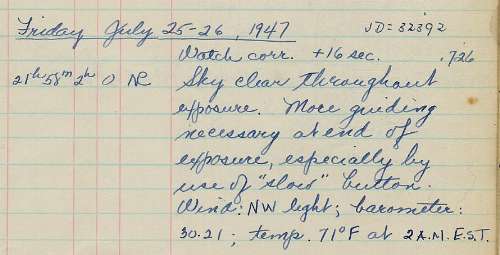 Friday July 25-26, 1947 JD=32392
Watch corr. +16 sec. .726
21h 58m 2h O NR Sky clear throughout
exposure. More guiding
necessary at end of
exposure, especially by
use of "slow" button.
Wind: NW light; barometer:
30.21; temp. 71°F at 2 A.M. E.S.T.